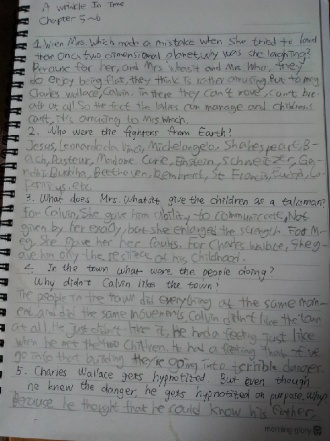 A wrinkle In Time
Chapter 5~6
1. When Mrs. Which made a mistake when she tried to land
them on a two dimensional planet, why was she laughing?
Because for her, and Mrs Whatsit and Mrs Who, they
do enjoy being flat, they think is rather amusing. But to meg
Charles wallace, Calvin. In there they can't move, can't bre-
ath at all. So the fact the ladies can manage and children
can't, It's amusing to Mrs which.
2. Who were the fighters from Earth?
Jesus, Leonardo da Vinci, Michelangelo, Shakespeare, B-
ach, Pasteur, Madame Curie, Einstein, Schweitzer, Ga-
ndhi, Buddha, Beethoven, Rembrandt, St. Francis,
etc.
3. What does Mrs. Whatsit give the children as a talisman?
For Calvin, She gave him ability to communicate, Not
given by her exactly, but she enlarged the strength. For M-
eg, She gave her her faults. For Charles wallace, She g-
ave him only the resilience of his childhood.
4. In the town what were the people doing?
Why didn't Calvin like the town?
The people in the town did everything at the same mom-
ent, and did the same movements. Calvin didn't like the town
at all. He just didn't like it, he had a feeling just like
when he met the two children. He had a feeling that if we
go into that building they're going into terrible danger.
5. Charles Wallace gets hypnotized. But even though
he knew the danger, he gets hypnotized on purpose. Why?
Because he thought that he could know his father.